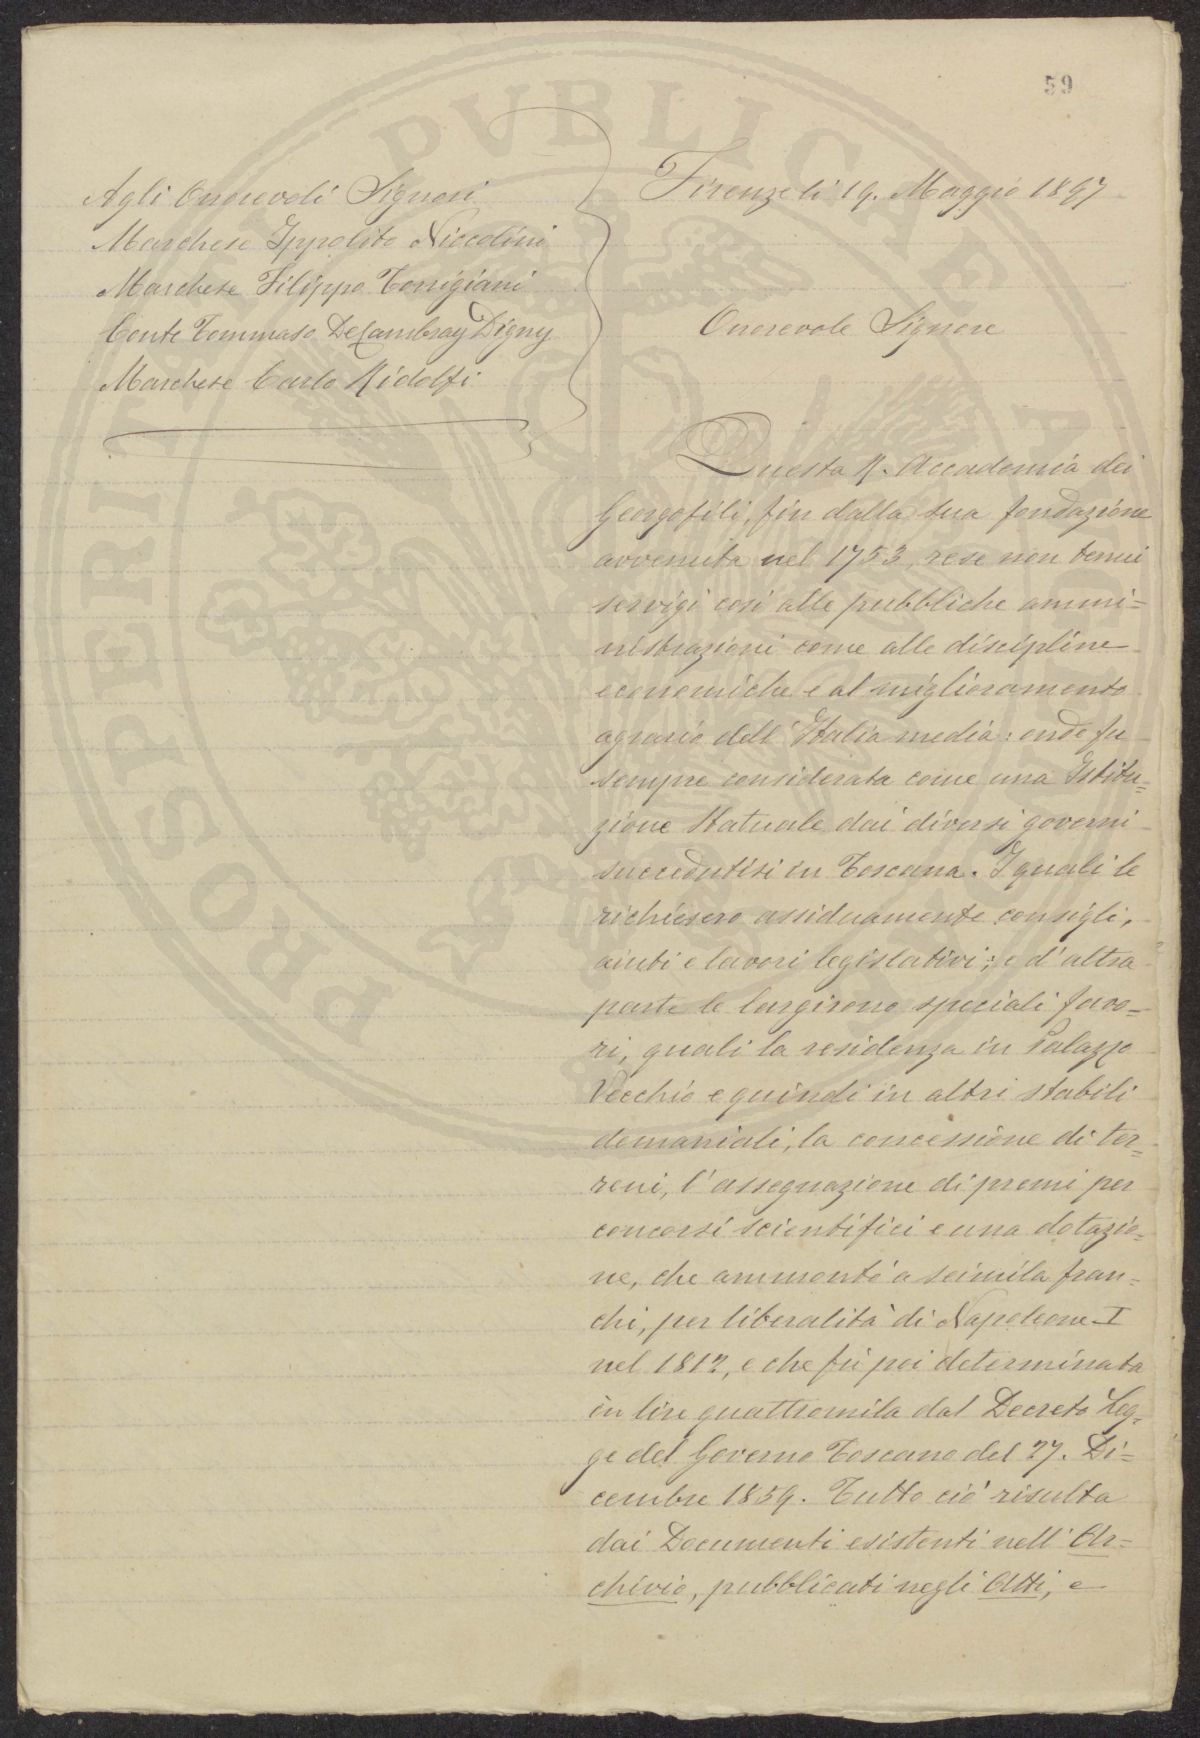 59
Agli Onorevoli Signori
Marchese Ippolito Niccolini
Marchese Filippo Torrigiani
Conte Tommaso De Cambray Digny
Marchese Carlo Ridolfi
Firenze li 19. Maggio 1897
Onorevole Signore
Questa R. Accademia dei
Georgofili, fin dalla sua fondazione
avvenuta nel 1753, rese non tenui
servigi così alle pubbliche ammi=
nistrazioni come alle discipline
economiche e al miglioramento
agrario dell'Italia media: onde fu
sempre considerata come una Istitu=
zione Statuale dai diversi governi
succedutisi in Toscana. I quali le
richiesero assiduamente consigli,
aiuti e lavori legislativi; e d'altra
parte le largirono speciali favo=
ri, quali la residenza in Palazzo
Vecchio e quindi in altri stabili
demaniali, la concessione di ter=
reni, l'assegnazione di premi per
concorsi scientifici e una dotazio=
ne, che ammontò a seimila fran=
chi, per liberalità di Napoleone I
nel 1812, e che fu poi determinata
in lire quattromila dal Decreto Leg=
ge del Governo Toscano del 27. Di=
cembre 1859. Tutto ciò risulta
dai Documenti esistenti nell'Ar=
chivio, pubblicati negli Atti, e
PROSPERITATI PVBLICAE AVGENDAE